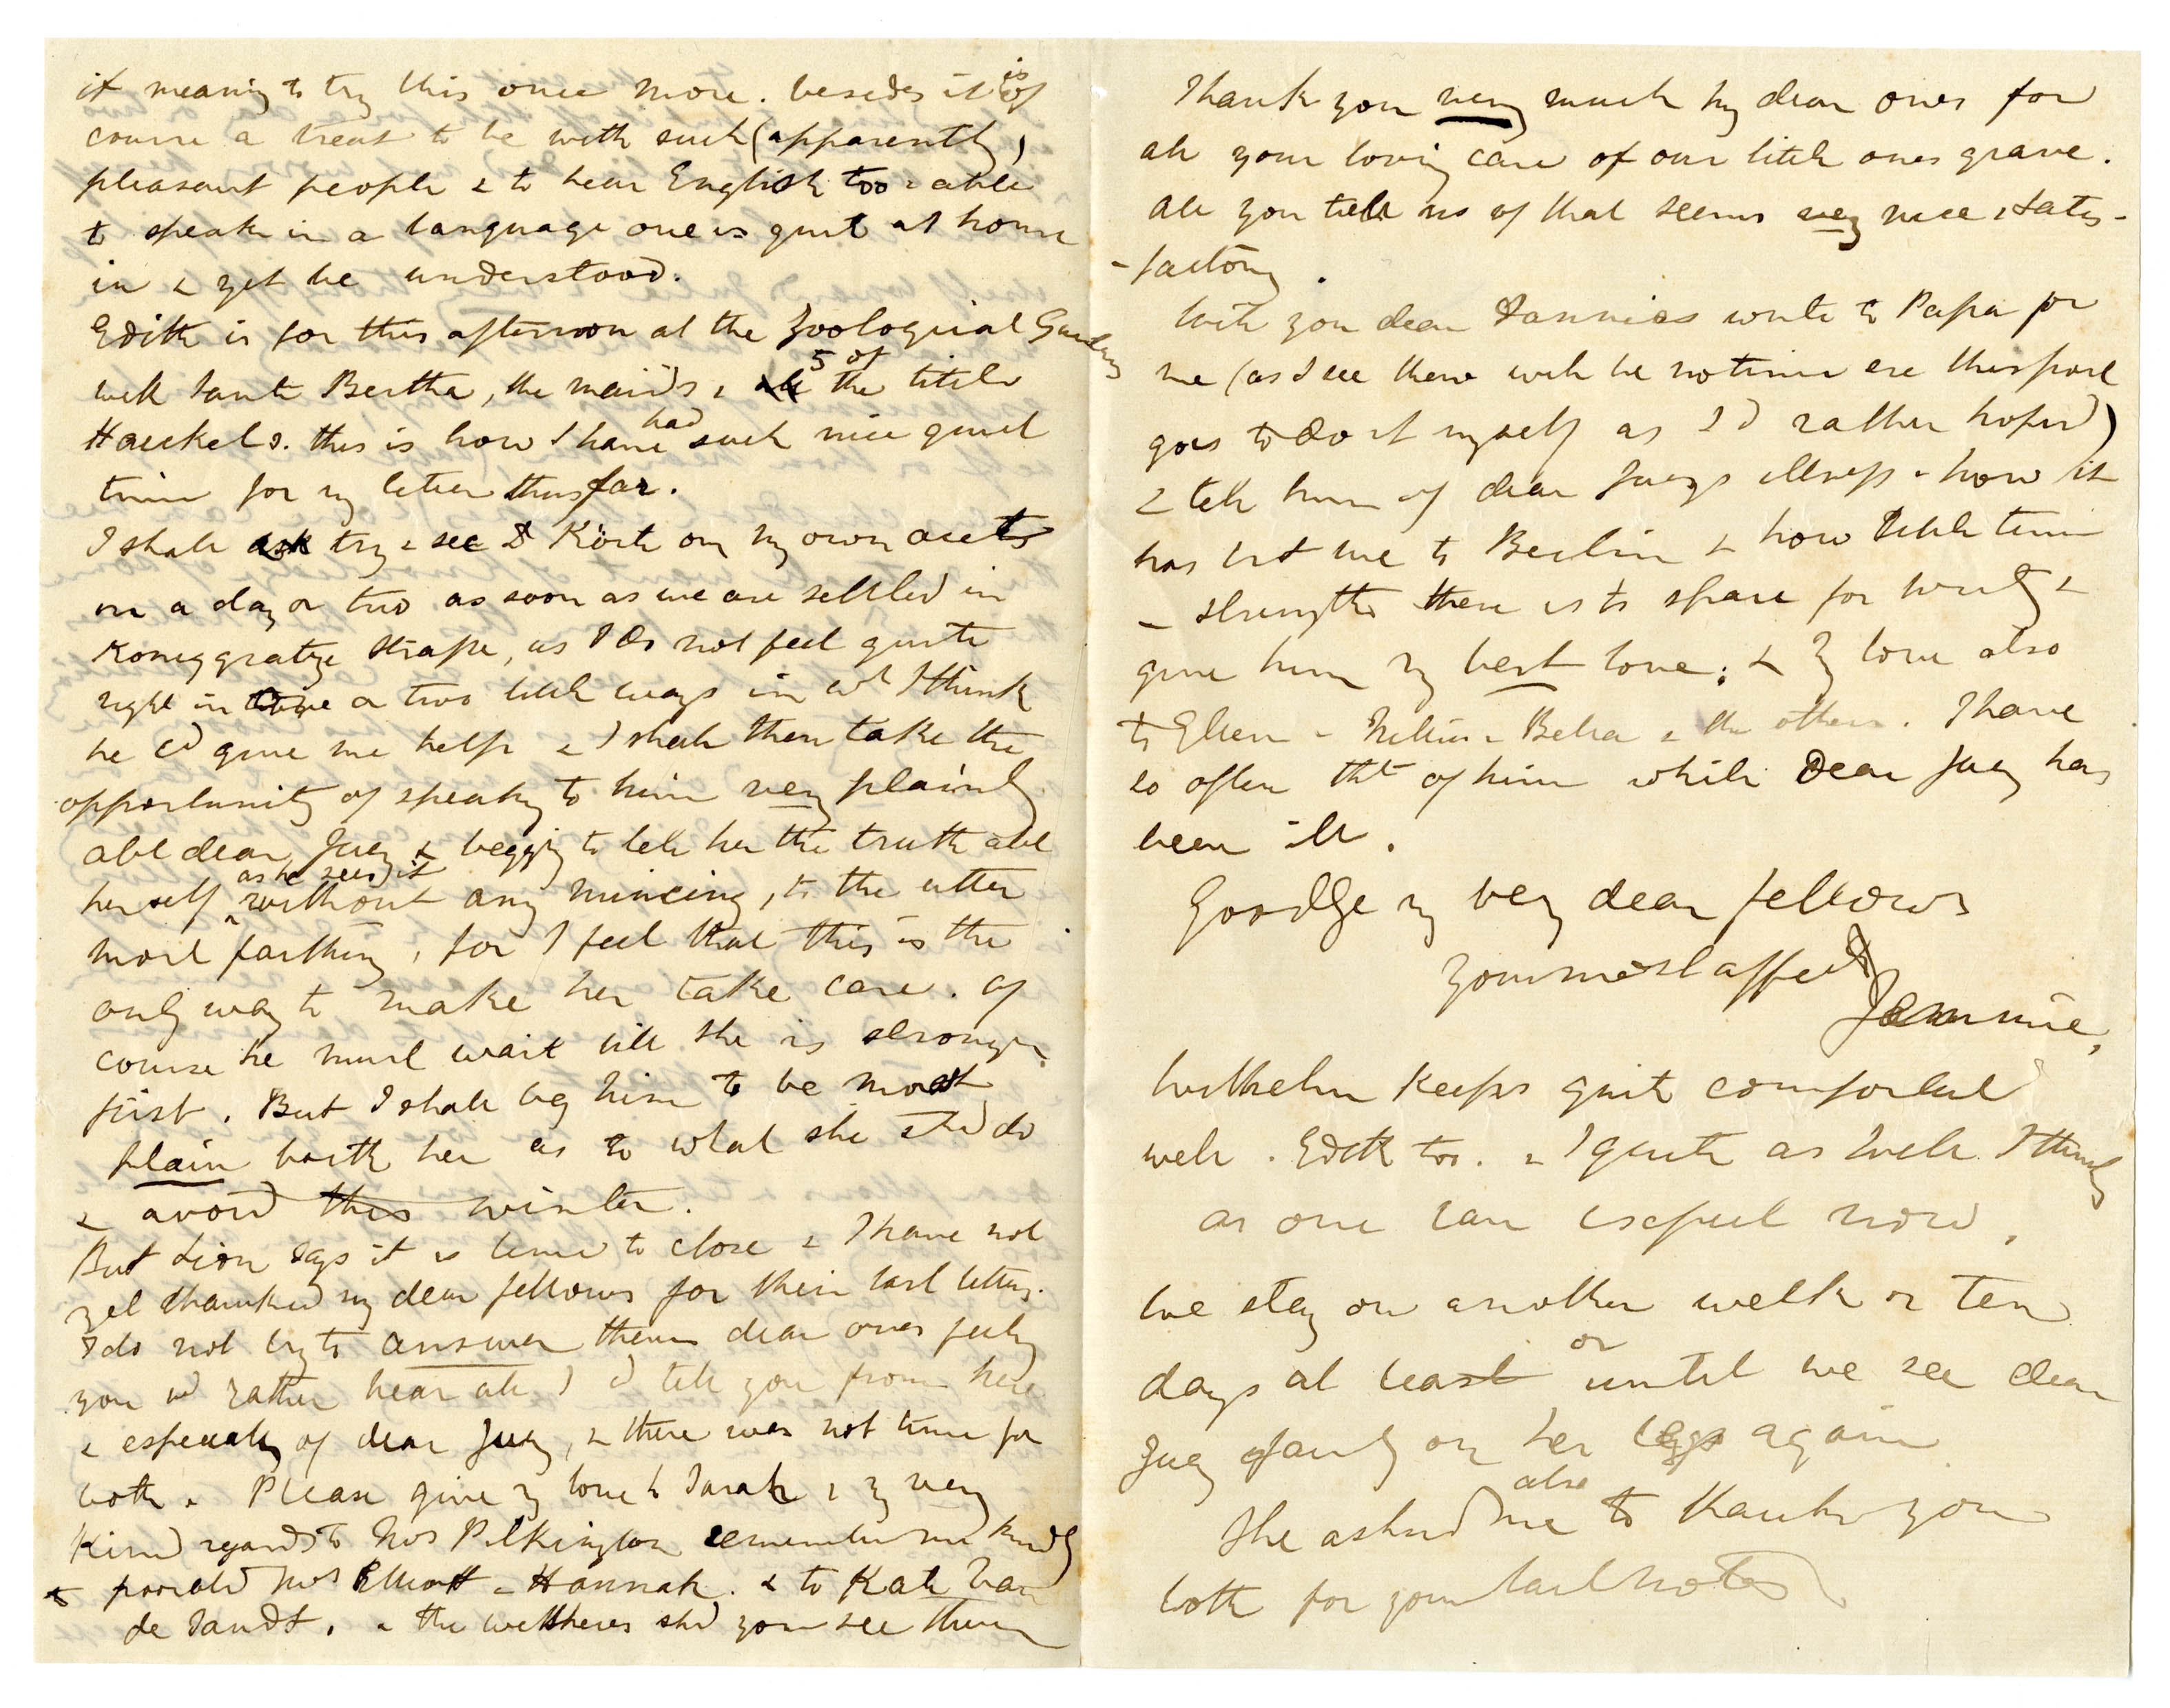 it meaning to try this once more. besides it is of
course a treat to be with such (apparently)
pleasant people & to hear English too & able
to speak in a language one is quite at home
in & yet be understood.
Edith is for this afternoon at the Zoological Gardens
with Tante Bertha, the maids, & all 5 of the little
Haeckels. this is how I have had such nice quiet
time for my letter thus far.
I shall ask try & see Dr Körte on my own acct
in a day or two as soon as we are settled in
Koniggratze Strasse, as I do not feel quite
right in one or two little ways in wh I think
he cd give me help & I shall then take the
opportunity of speakg to him very plainly
abt dear Juey & beggig to tell her the truth abt
herself as he sees it without any mincing, to the utter
most farthing, for I feel that this is the
only way to make her take care. Of
course he must wait till she is stronger
first. But I shall beg him to be most
plain with her as to what she shd do
& avoid this winter.
But Lion says it is time to close & I have not
yet thanked my dear fellows for their last letters.
I do not try to answer them dear ones feelg
you wd rather hear all I cd tell you from here
& especially of dear Juey, & there was not time for
both. Please give my love to Sarah & my very
Kind regards to Mrs Pilkington remember me kindly
to poor old Mrs Elliott & Hannah. & to Kate Van
de Sandt. & the shd you see them
Thank you very much my dear ones for
all your loving care of our little ones grave.
All you tell us of that seems very nice & satis-
-factory.
Will you dear Fannies write to Papa for
me (as I see there will be no time ere this post
goes to do it myself as I'd rather hoped)
& tell him of dear Jueys illness & how it
has brt me to Berlin & how little time
& strength there is to spare for writg &
give him my best love; & my love also
to Ellen & Nellie & Bella & the others. I have
so often tht of him while dear Juey has
been ill.
Goodbye my very dear fellows
your most affect
Jeannie,
Wilhelm keeps quite comfortable
well. Edith too. & I quite as well I think
as one can expect now.
We stay on another week or ten
days at least or until we see dear
Juey fairly on her legs again
She asked me also to thank you
both for your last notes